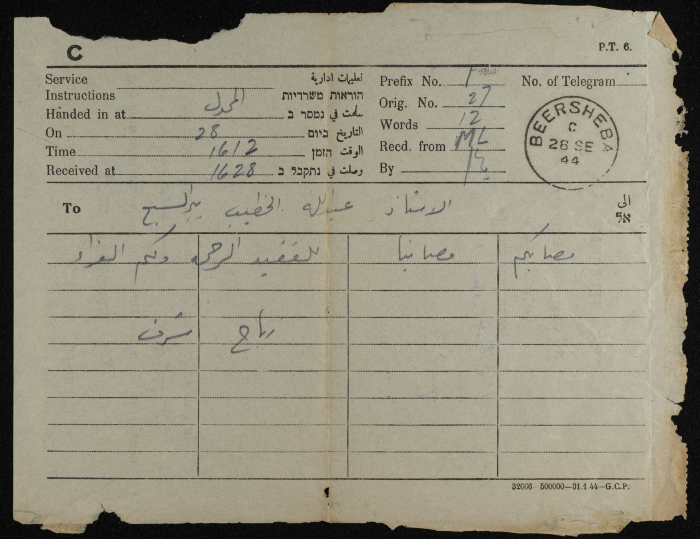 C
P.T. 6.
Service تعليمات ادارية
Instructions הוראות משרדיות
Handed in at المجدل سلمت في נמסר ב
On 28 التاريخ ביום
Time 1612 الوقت הזמן
Received at 1628 وصلت في נתקבל ב
Prefix No.
Orig. No. 27
Words 12
Recd. from ML
By
No. of Telegram
BEERSHEBA
C
28 SE
44
To الاستاذ عبدالله الخطيب بيرالسبع الى
אל
مصابكم مصابنا للفقيد الرحمه ولكم العزاء
رباح شرف
32666—500000—31.1.44—G.C.P.